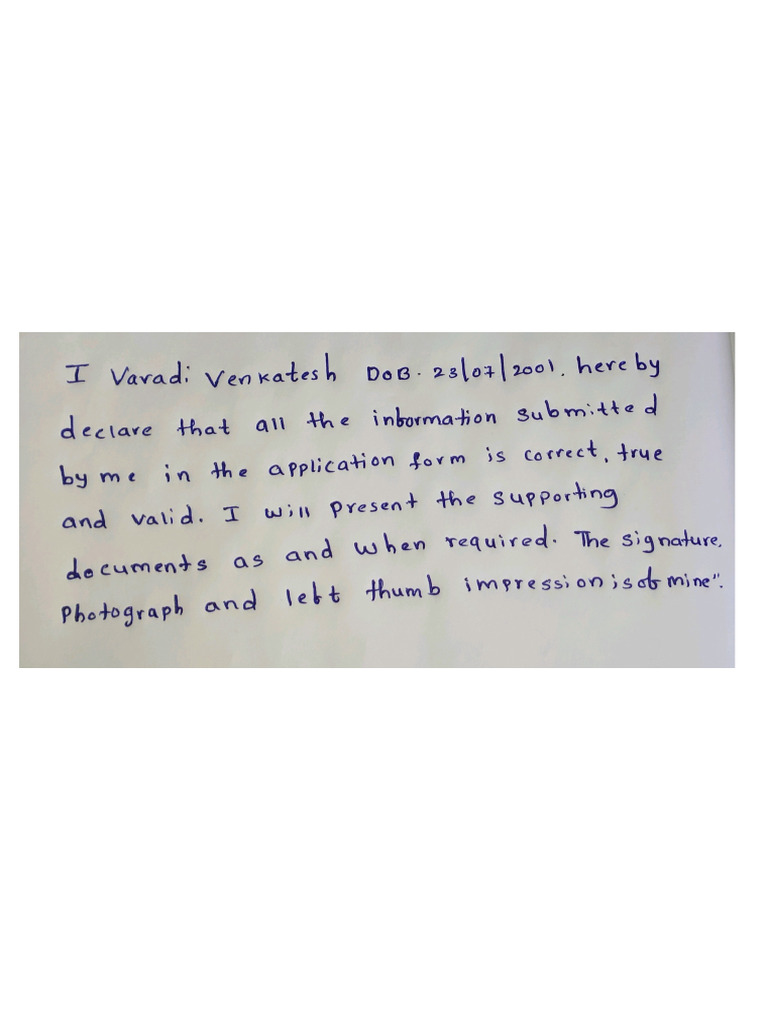 I Varadi Venkatesh DOB. 23/07/2001. hereby
declare that all the information submitted
by me in the application form is correct, true
and valid. I will present the supporting
documents as and when required. The signature,
Photograph and left thumb impression is of mine".